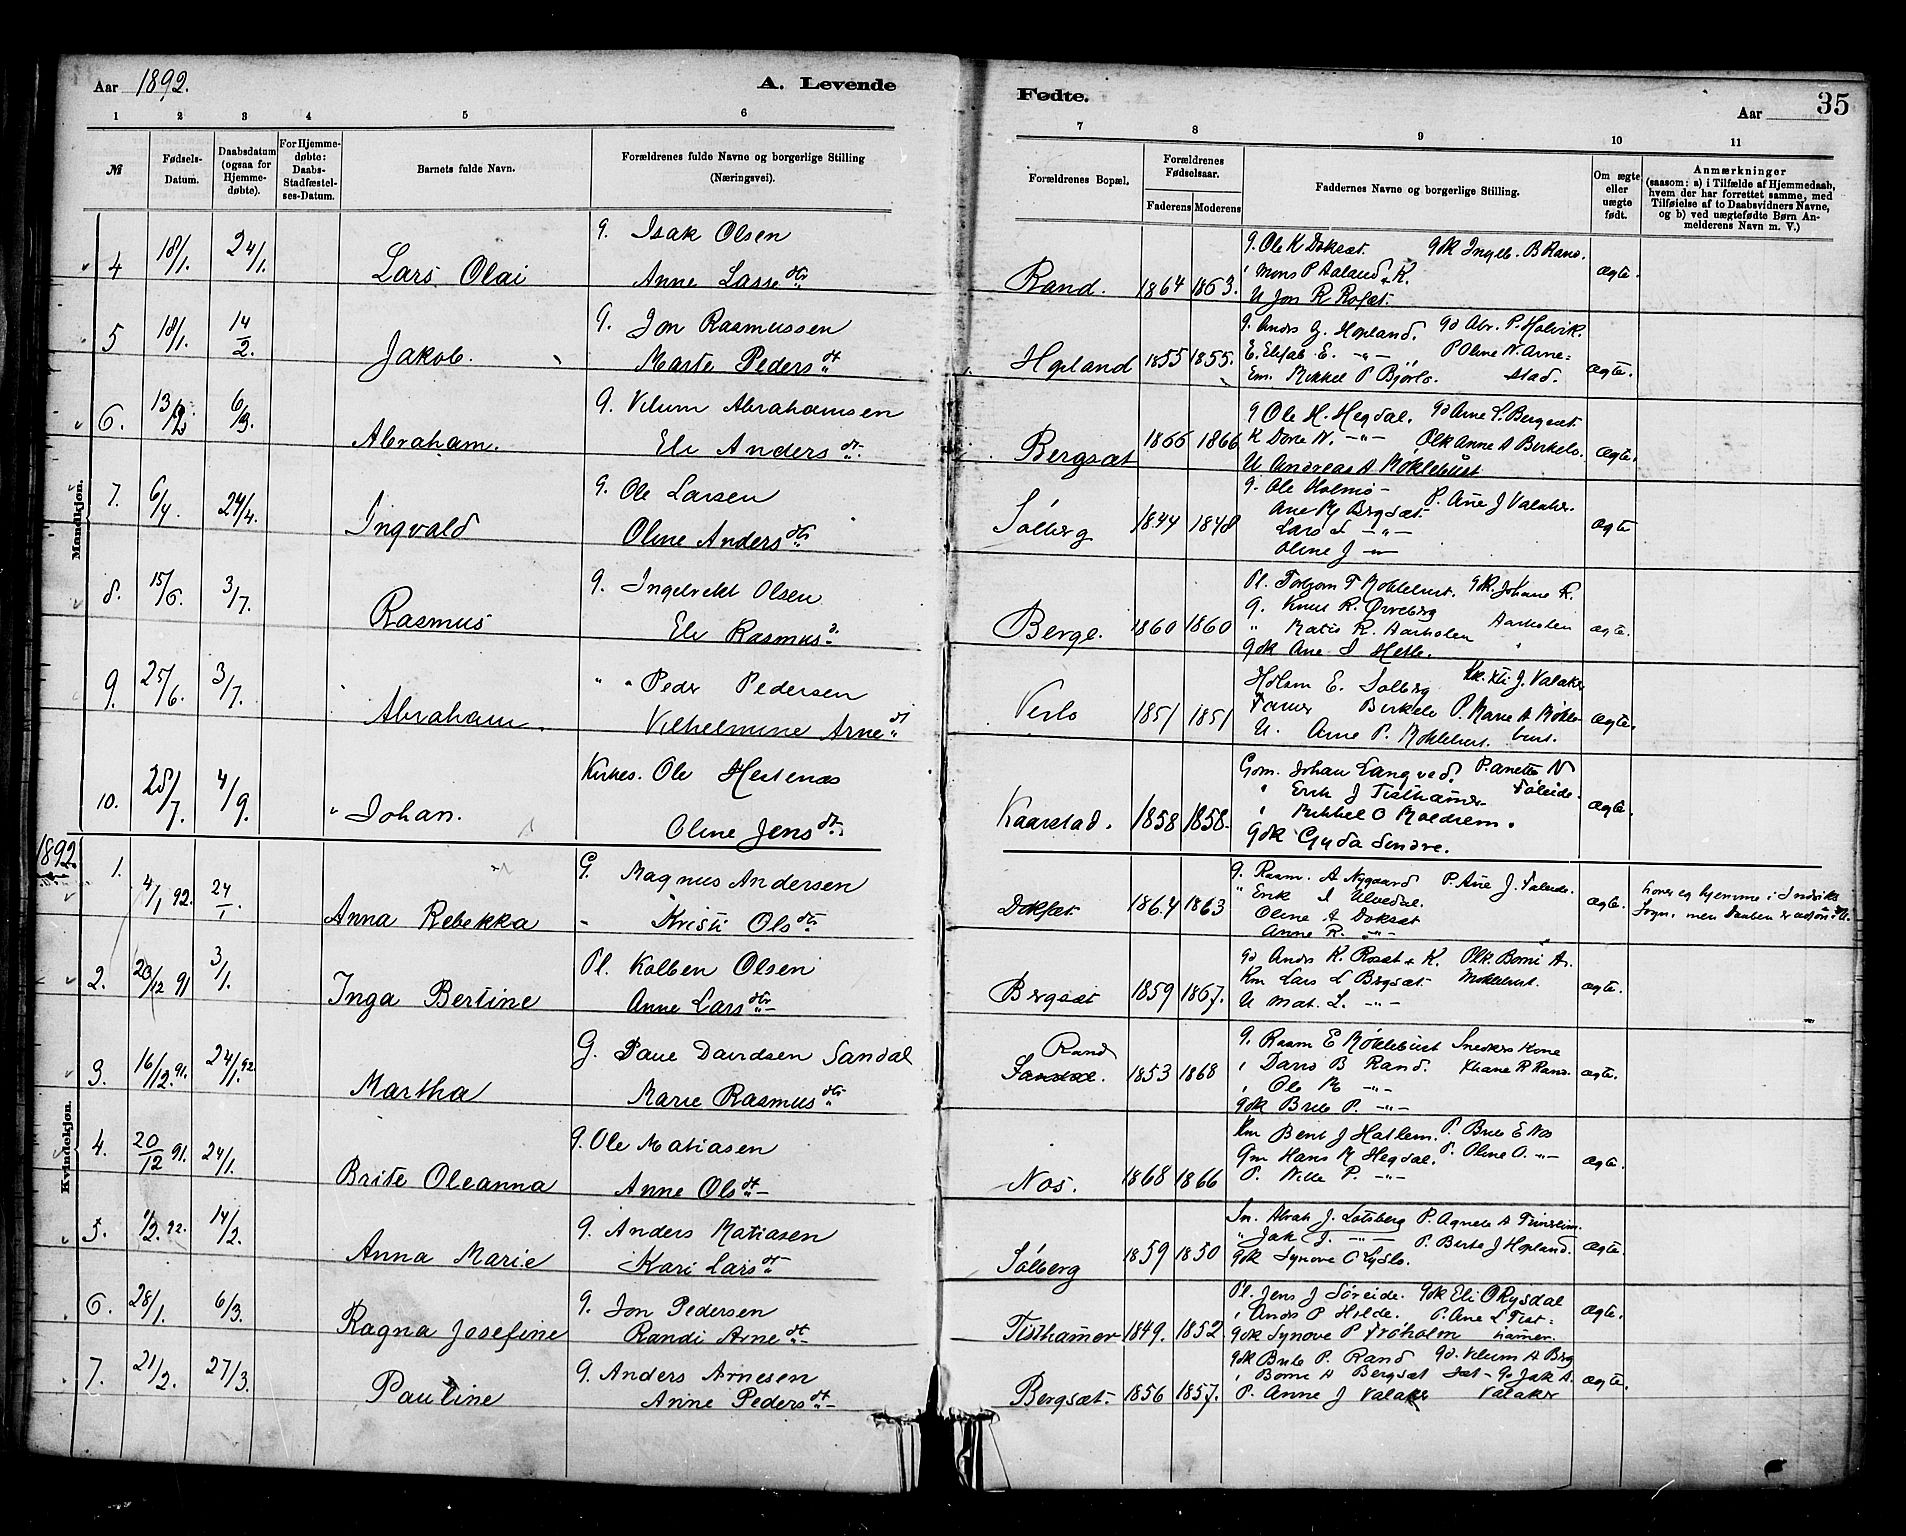 Aar 1892.
A. Levende
Fødte.
Aar
35
1 2 3 4 5 6 7 8 9 10 11
№
Fødsels-Datum.
Daabsdatum (ogsaa for Hjemmedøbte).
For Hjemmedøbte: Daabs-Stadfæstelses-Datum.
Barnets fulde Navn.
Forældrenes fulde Navne og borgerlige Stilling (Næringsvei).
Forældrenes Bopæl.
Forældrenes Fødselsaar.
Faderens Moderens
Faddernes Navne og borgerlige Stilling.
Om ægte eller uægte født.
Anmærkninger
(saasom: a) i Tilfælde af Hjemmedaab, hvem der har forrettet samme, med Tilføielse af to Daabsvidners Navne, og b) ved uægtefødte Børn Anmelderens Navn m. V.)
Mandkjøn.
4 18/1. 24/1. Lars Olai G. Isak Olsen
Anne Lasse dtr
Rand. 1864 1863.
G. Ole K Doksæt. Gdk Ingeb. B Rand.
Mons P Aaland + K.
U Jon R Rosæt.
ægte.
5 18/1. 14/2. Jakob. G. Jon Rasmussen
Marte Peders dt
Hopland 1855 1855.
G. Anders J. Hopland. Gd Abr. P. Holvik.
E. Elisab E. -"- P Oline N. Arne=
Em. Mikkel P Bjørlo. stad.
ægte.
6. 13/2. 6/3. Abraham. G. Vilum Abrahamsen
Eli Anders dt.
Bergsæt 1866 1866
G Ole H. Hegdal. Gd Arne L. Bergsæt
K Dorte N. -"- Olk Anne A Birkelo.
U Andreas A Møklebust
ægte.
7. 6/4. 24/4. Ingvald G. Ole Larsen
Oline Anders dtr
Sølberg 1844 1848
G. Ole Holmø - P. Ane J Valaker.
Ane M Bergsæt
Lars L -"-
Oline J -"-
ægte
8. 15/6. 3/7. Rasmus G. Ingebrikt Olsen
Eli Rasmus d.
Berge. 1860 1860
Pl. Torbjørn T Møklebust. Gdk. Johane R.
G. Knut R. Ørreberg Aarholen
" Matis R. Aarholen
Gdk Ane I Hetle.
ægte.
9. 25/6. 3/7. Abraham. " " Peder Pedersen
Vilhelmine Arne dt
Verlo 1851 1851
E. Solberg J. Valaker
Birkelo P. Marie A Møkle-
U. Arne P. Møklebust. bust.
ægte.
10. 28/7. 4/9. Johan. Kirkes. Ole Hestenes
Oline Jens dt.
Kaarstad. 1858 1858.
Gdm. Johan Langved. P. Anette N
" Erik J Tisthamer Føleide.
" Mikkel O Moldrem.
Gdk Gyda Sindre.
ægte.
1892.
Kvindekjøn.
1. 4/1 92. 24/1. Anna Rebekka G. Magnus Andersen
- Kristi Ols dtr
Doksæt. 1864 1863
G. Rasm. A Nygaard P. Ane J. Føleide.
" Erik I Alvedal.
Oline A Doksæt
Anne R. -"-
ægte. hører eg hjemme i Indviks
Sogn, men Daaben er
2. 23/12 91 3/1. Inga Bertine Pl. Kolben Olsen
Anne Lars dtr
Bergsæt 1859 1867.
Gd Anders K. Rosæt + K. Olk. Borni A.
Km Lars L Bergsæt. Møklebust.
U Mat. L. -"-
ægte.
3. 16/12. 91. 24/1. 92 Martha G. Paul Davidsen Sandal
Marie Rasmus dtr
Rand
Sandal. 1853 1868
G. Rasm E Møklebust Snedkers Kone
" David B Rand. R Rand.
" Ole M -"-
Gdk Brite P. -"-
ægte.
4. 20/12 91. 24/1. Brite Oleanna G. Ole Matiasen
Anne Ols dt
Nos. 1868 1866
Km Bent J Hatlem. P. Brite E Nos
Gm Hans M Hegdal. P. Oline O. -"-
P. Nille P. -"-
ægte.
5. 1/2. 92. 14/2. Anna Marie G. Anders Matiasen
Kari Lars dt
Sølberg 1859 1850
Sn. Abrah J. Lotsberg P. Agnete A
" Jak J. -"- P. Berte J Hopland.
Gdk Synove O Lyslo.
ægte.
6. 28/1. 6/3. Ragna Josefine G. Jon Pedersen
Randi Arne dt
Tisthamer 1849. 1852
Pl. Jens J Søreide. Gdk Eli O Rysdal
" Anders P Hilde. P. Ane L Tist-
Gdk Synove P Frøholm hamer.
ægte.
7. 21/2. 27/3. Pauline G. Anders Arnesen
Anne Peders dt
Bergsæt. 1856 1857.
Gdk Brite P. Rand Gd. Vilum A Berg
" Borni A Bergsæt sæt - Gd Jak A.
P. Anne J Valaker Valaker
ægte.